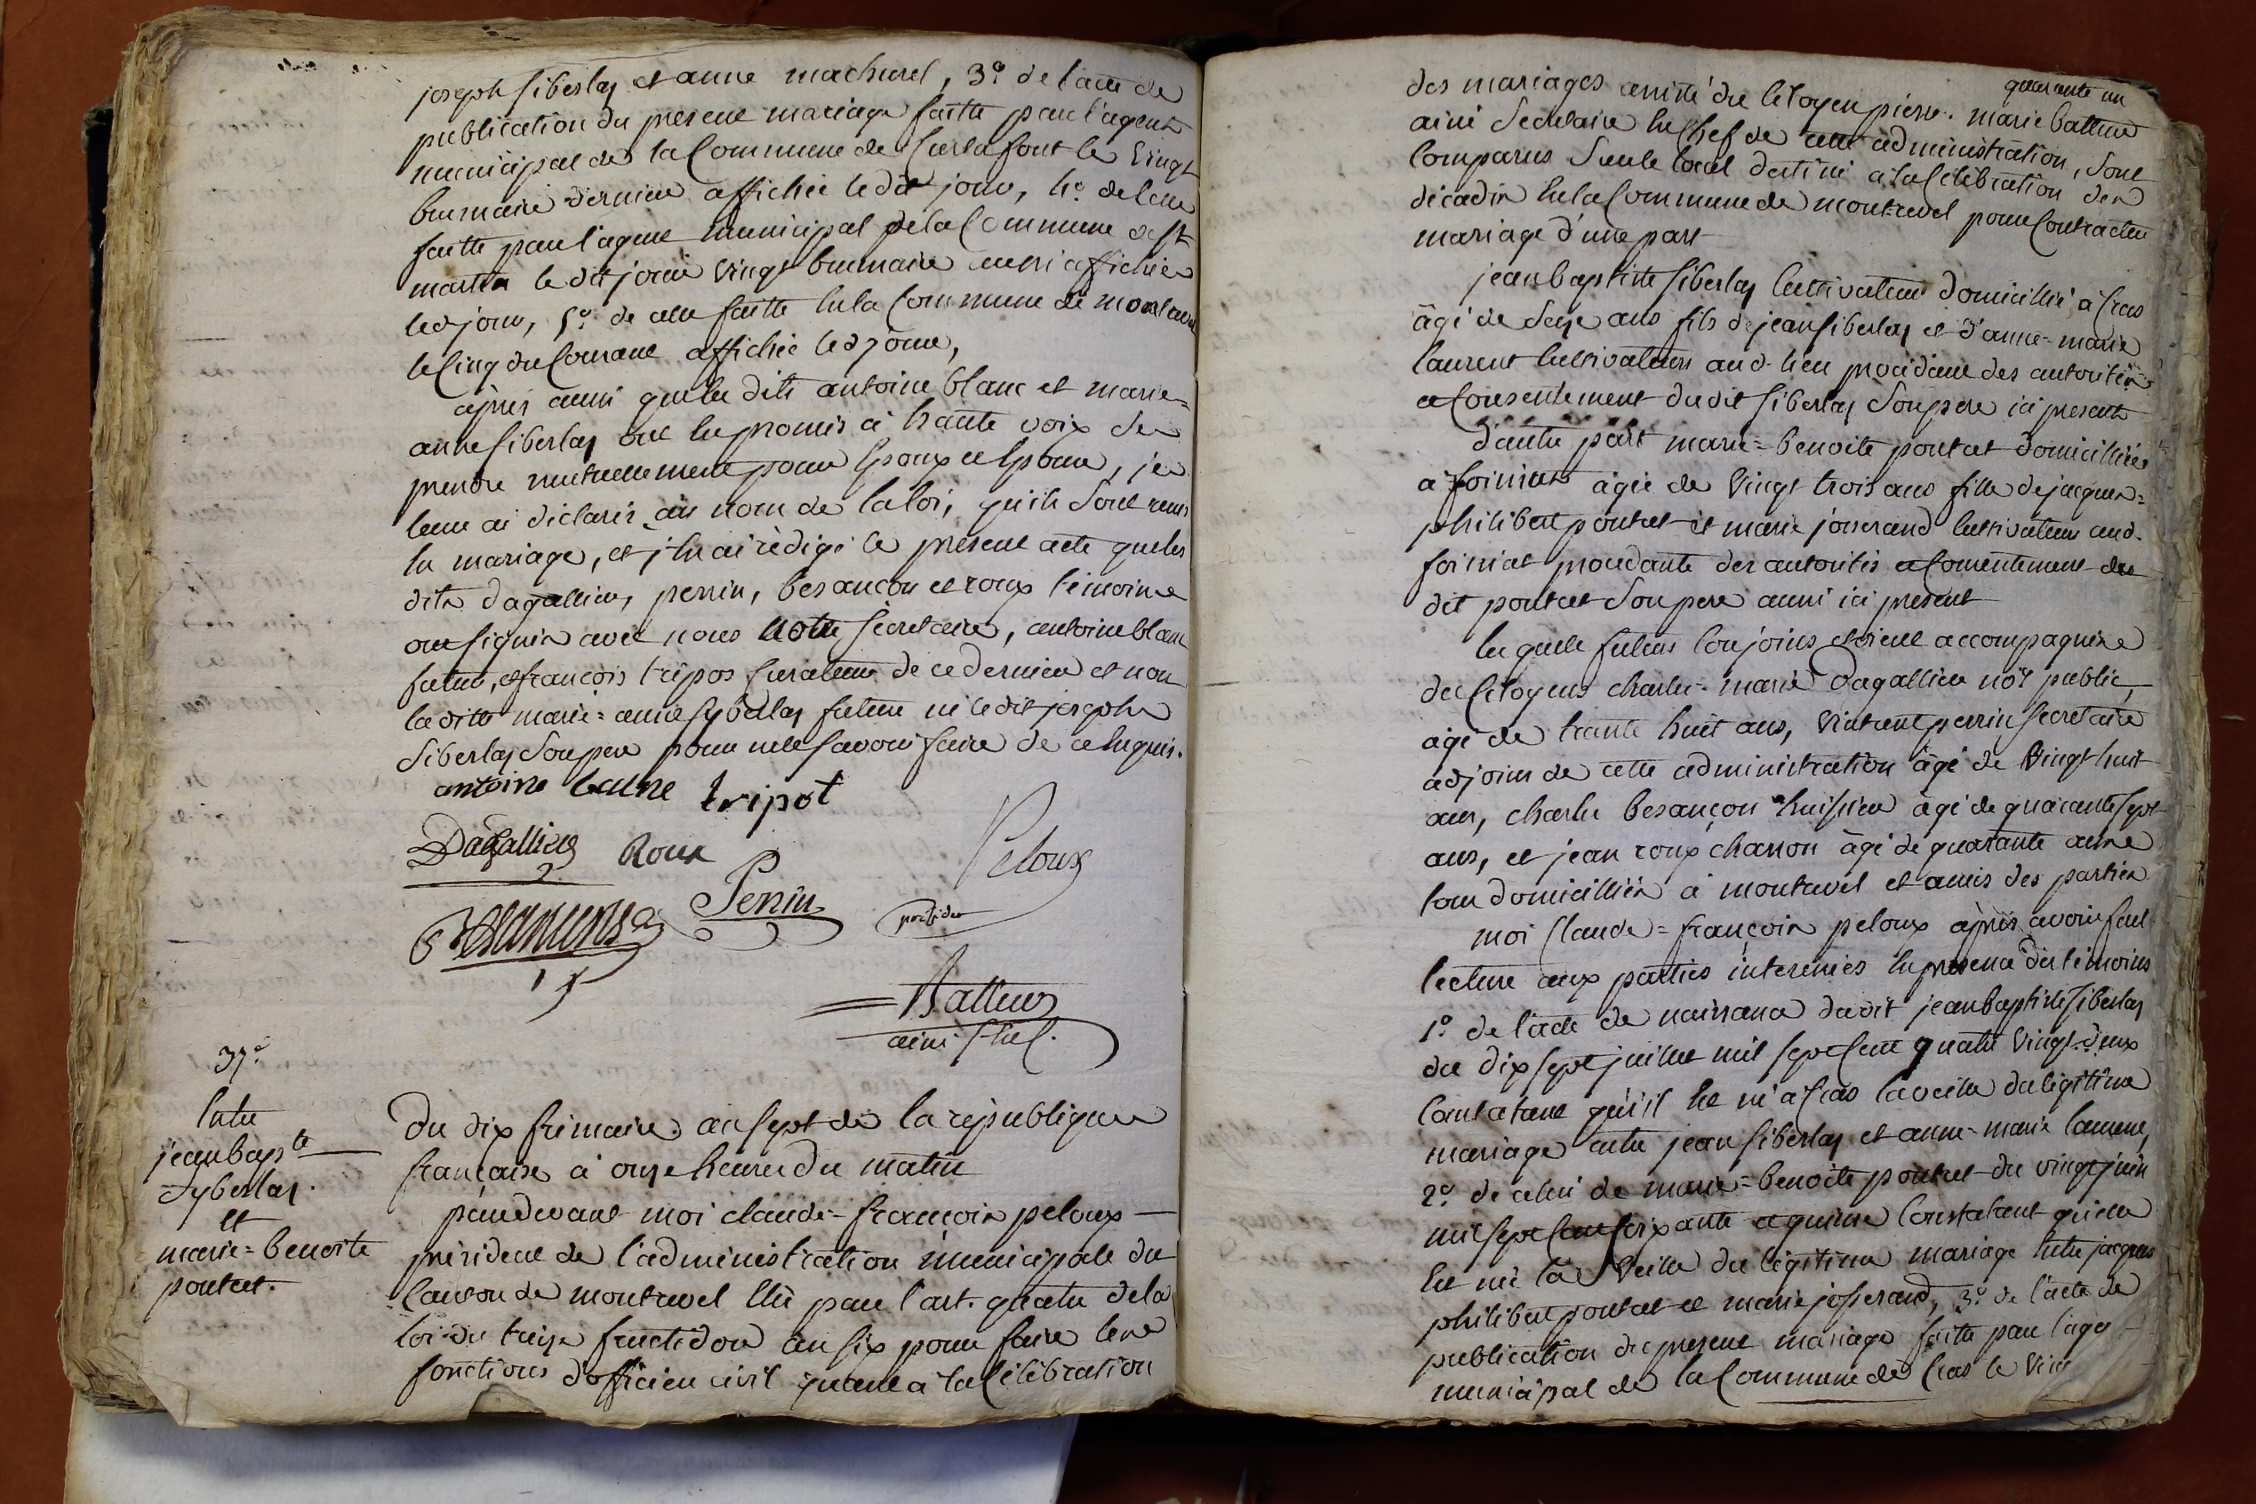 joseph siberlas et anne machurel, 3º. de l'acte de
publication du present mariage faitte par l'agent
municipal de la Commune de Curtafont le vingt
brumaire dernier affichée le dit jour, 4º. de celle
faitte par l'agent municipal de la Commune de St
martin le dit jour vingt brumaire aussi affichée
led jour, 5º. de celle faitte en la Commune de montrevel
le Cinq du Courant affichée led jour,
après aussi que les dits antoine blanc et marie=
anne siberlas ont eu promis à haute voix de se
prendre mutuellement pour Epoux et Epouse, je
leur ai déclarés au nom de la loi, qu'ils sont unis
en mariage, et j'en ai rédigé le present acte que les
dits dagallier, perrin, besançon et roux témoins
ont signés avec nous notre secretaire, antoine blanc
futur, et françois tripos curateur de ce dernier et non
la ditte marie=anne syberlas future ni le dit joseph
siberlas son pere pour ne le savoir faire de ce enquis.
antoine blanc tripot
Dagallier Roux Peloux
Besançon Perin président
Batteur
ainé s. en C.
37.e
Entre
jean bap.te
Syberlas.
et
marie=benoite
pontet.
Du dix frimaire an sept de la république
française à onze heures du matin
pardevant moi claude=françois peloux
président de l'administration municipale du
Canton de montrevel Elu par l'art. quatre de la
loi du treize fructidor an six pour faire les
fonctions d'officier civil quant à la Célébration
quarante un
des mariages assisté du Citoyen pierre=marie batteur
ainé Secretaire en Chef de cette administration, sont
comparus sur le local destiné à la Célébration des
décadis en la Commune de montrevel pour Contracter
mariage d'une part
jean baptiste siberlas Cultivateur domicillié à Cras
âgé de Seize ans fils de jean siberlas et d'anne=marie
laurent Cultivateurs aud. lieu procédant des autorités
et Consentement du dit siberlas son pere ici present
d'autre part marie=benoite pontet domicilliée
à foissiat âgée de vingt trois ans fille de jacques=
philibert pontet et marie josserand Cultivateurs aud.
foissiat procédante des autorités et Consentement du
dit pontet son pere aussi ici present
lesquels futurs Conjoins étoient accompagnés
des Citoyens charles=marie Dagallier nore public,
âgé de trante huit ans, vintcent perrin secretaire
adjoint de cette administration âgé de vingt huit
ans, charles besançon huissier âgé de quarante sept
ans, et jean roux charron âgé de quarante ans
tous domicilliés à montrevel et amis des parties
moi Claude=françois peloux après avoir fait
lecture aux parties interessées en presence des témoins
1º. de l'acte de naissance du dit jean baptiste siberlas
du dix sept juillet mil sept Cent quatre vingt deux
Constatant qu'il est né à Cras la veille du légitime
mariage entre jean siberlas et anne-marie laurent,
2º. de celui de marie=benoite pontet du vingt juin
mil sept Cent soixante et quinze Constatant qu'elle
est née la veille du légitime mariage entre jacques
philibert pontet et marie josserand, 3º. de l'acte de
publication du present mariage faitte par l'agent
municipal de la Commune de Cras le